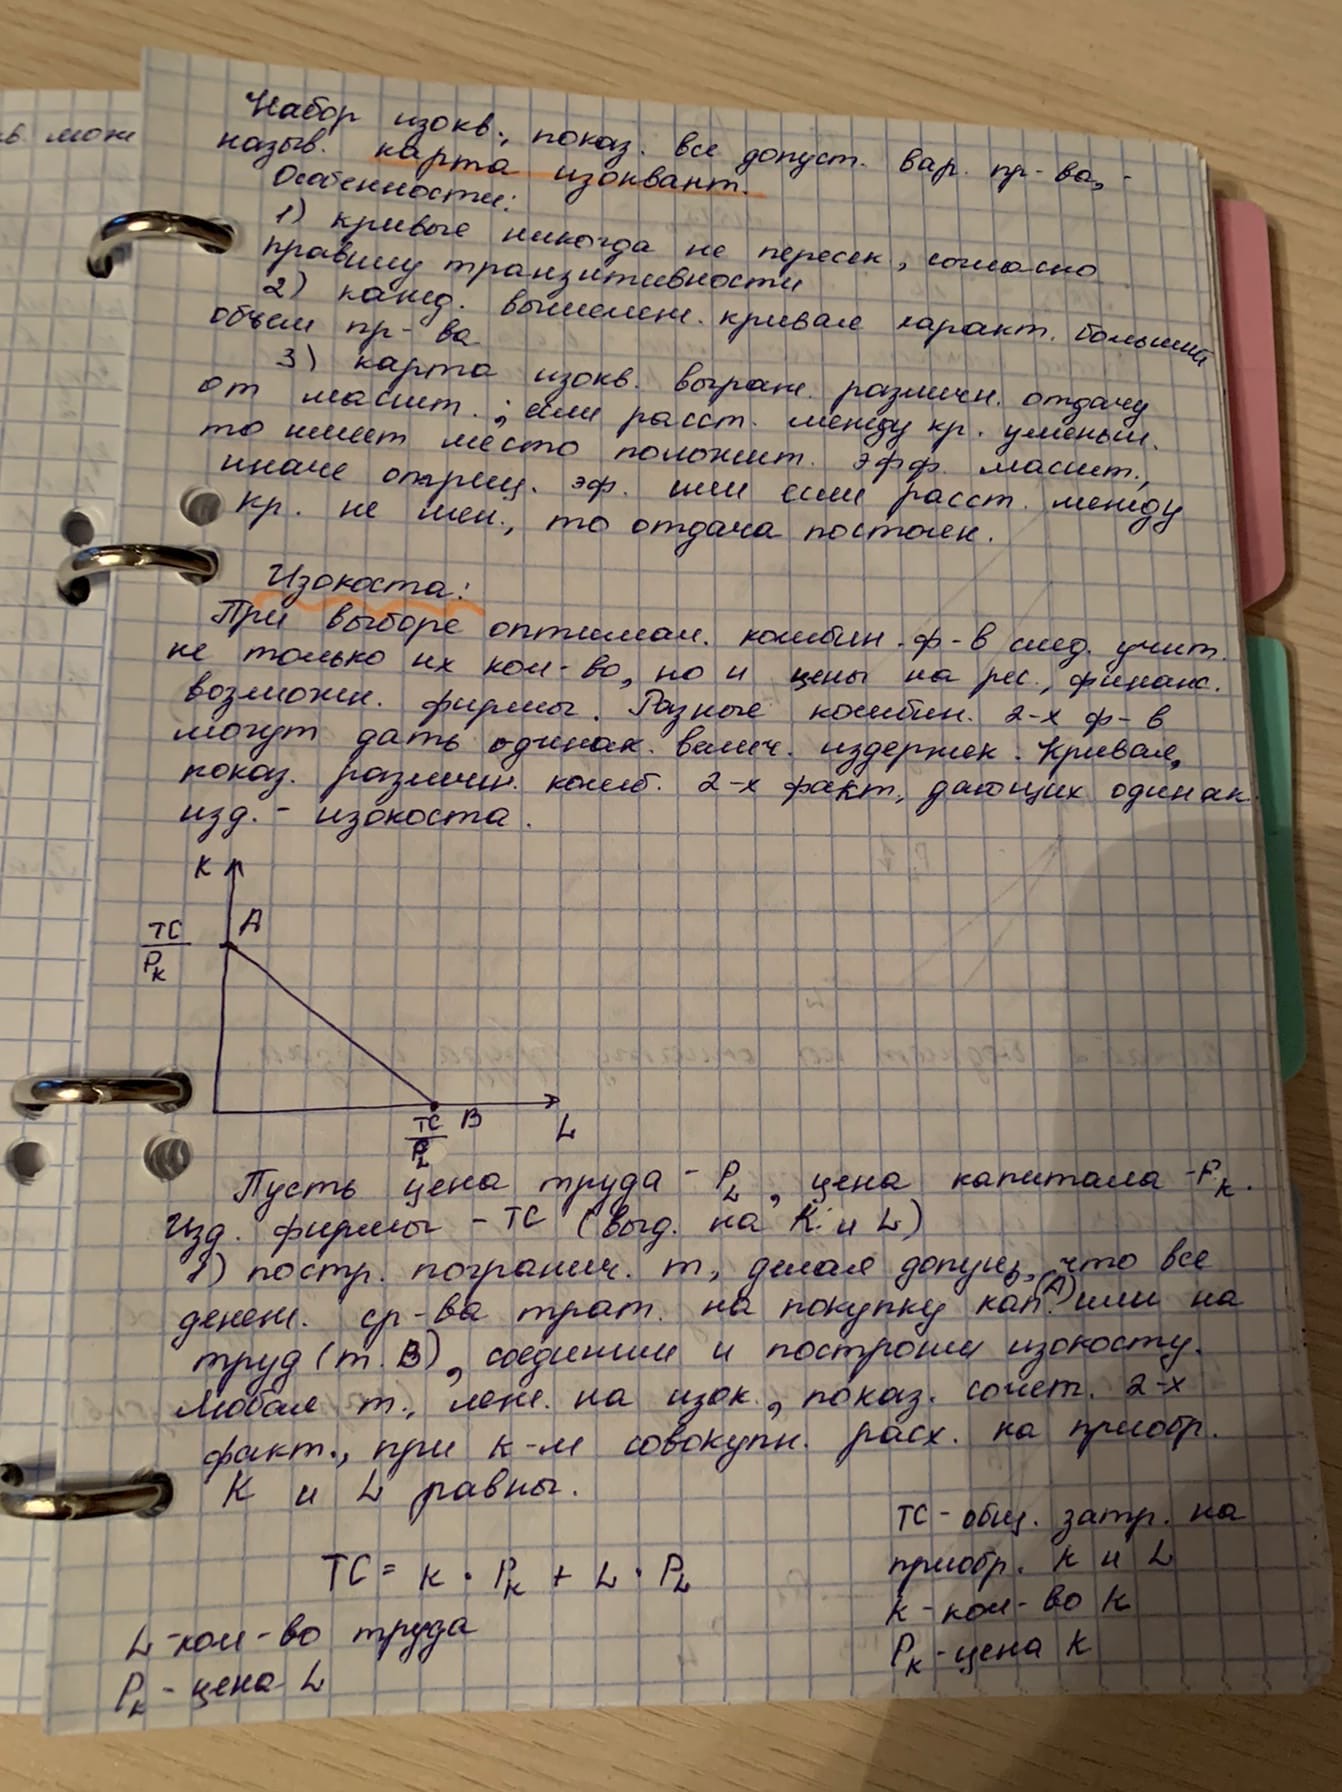 в. мож
Набор изокв., показ. все допуст. вар. пр-ва, -
назыв. карта изоквант.
Особенности:
1) кривые никогда не пересек, согласно
правилу транзитивности
2) кажд. вышележ. кривая характ. больший
объем пр-ва
3) карта изокв. выраж. различн. отдачу
от масшт.; если расст. между кр. уменьш.
то имеет место положит. эфф. масшт.,
иначе отриц. эф. или если расст. между
кр. не мен., то отдача постоян.
Изокоста:
При выборе оптимал. комбин. ф-в след. учит.
не только их кол-во, но и цены на рес., финанс.
возможн. фирмы. Разные комбин. 2-х ф-в
могут дать одинак. велич. издержек. Кривая,
показ. различн. комб. 2-х факт., дающих одинак.
изд. - изокоста.
K
A
TC
Pк
TC B
PL L
Пусть цена труда - PL, цена капитала - Pк.
Изд. фирмы - TC (выд. на K и L)
1) постр. погранич. т, делая допущ, что все
денеж. ср-ва трат. на покупку кап.(A) или на
труд (т. B), соединим и построим изокосту.
Любая т., леж. на изок., показ. сочет. 2-х
факт., при к-м совокупн. расх. на приобр.
K и L равны.
TC = K · Pк + L · PL
TC - общ. затр. на
приобр. K и L
K - кол-во K
Pк - цена K
L - кол-во труда
PL - цена L